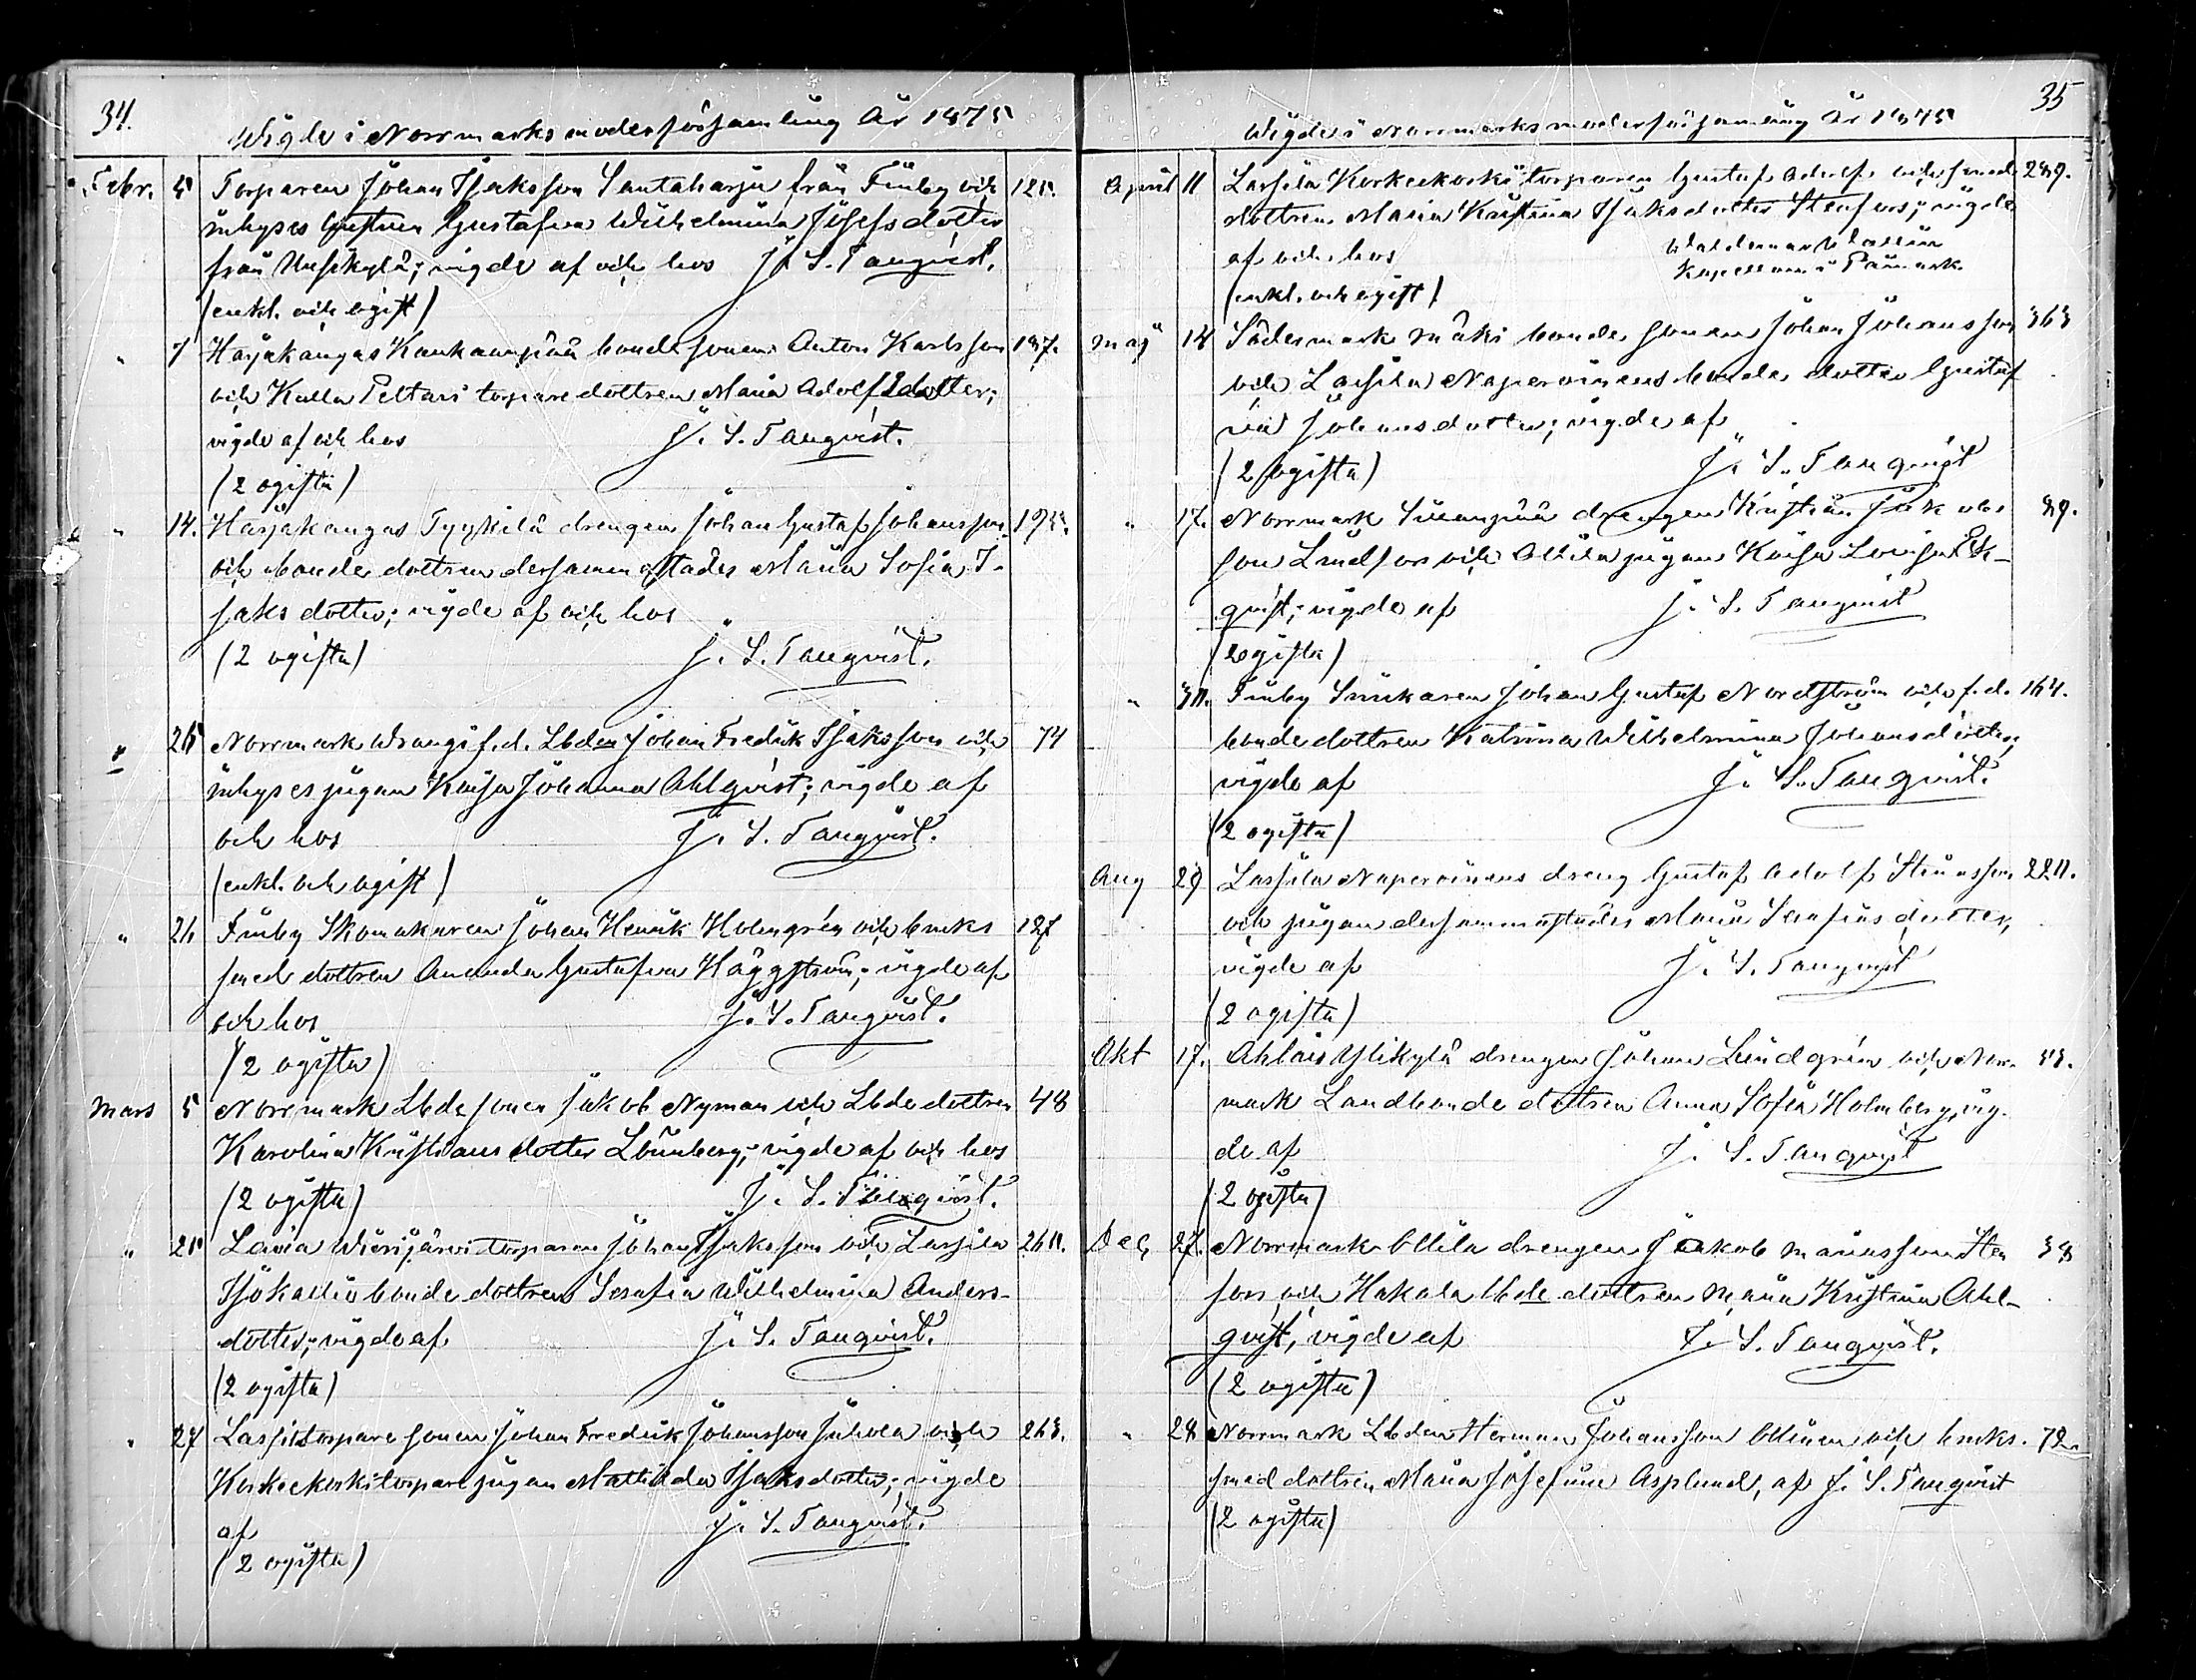 34.
Wigde i Norrmarks moderförsamling År 1875
Febr. 5 Torparen Johan Isaksson Santaharju från Finby och 125.
inhyses Gustava Wilhelmina Josefsdotter
från ; vigde af och hos J. S. Tanqvist.
(enkl. och ogift)
" 7 Harjakangas Kankaanpää bondesonen Anton Karlsson 187.
och Kulla Peltari torparedottren Maria Adolfsdotter;
vigde af och hos J. S. Tanqvist.
(2 ogifta)
" 14. Harjakangas Tyykilä drengen Johan Gustaf Johansson 195.
och bonde dottren dersammastädes Maria Sofia I-
saksdotter; vigde af och hos
(2 ogifta) J. S. Tanqvist.
" 26 Norrmark f.d. Lbden Johan Fredrik Isaksson och 74
inhyses pigan Kaisa Johanna Ahlqvist; vigde af
och hos J. S. Tanqvist.
(enkl. och ogift)
" 26 Finby Skomakaren Johan Henrik Holmgrén och bruks 127
smed dottren Amanda Gustafva Häggström; vigde af
och hos J. S. Tanqvist.
(2 ogifta)
Mars 5 Norrmark Lbdesonen Jakob Nyman och Lbde dottren 48
Karolina Kristiansdotter Lönnberg; vigde af och hos
(2 ogifta) J. S. Tanqvist.
" 25 Lavia torparen Johan Isaksson och Lassila 260.
Isokallio bonde dottren Serafia Wilhelmina Anders-
dotter; vigde af J. S. Tanqvist.
(2 ogifta)
" 27 torpare sonen Johan Fredrik Johansson Juhola och 263.
Korkeekoski torpare pigan Mathilda Isaksdotter; vigde
af J. S. Tanqvist.
(2 ogifta)
35
Wigde i Norrmarks moderförsamling År 1875
April 11 Lassila Korkeekoski torparen Gustaf Adolf och smed 289.
dottren Maria Kristina Isaksdotter Stenfors; vigde
af och hos Waldemar Wallin
Kapellan i Påmark
(enkl. och ogift)
Maj 14 Södermark Mäki bonde sonen Johan Johansson 363
och Lassila bonde dotter Gustaf
va Johansdotter; vigde af
(2 ogifta) J. S. Tanqvist
" 17. Norrmark drengen Kristian Jakobs 89.
son Lindfors och pigan Kaisa Lovisa Ek-
qvist; vigde af J. S. Tanqvist
(ogifta)
" 30. Finby Snickaren Johan Gustaf Nordström och f.d. 164.
bonde dottren Katrina Wilhelmina Johansdotter;
vigde af J. S. Tanqvist.
(2 ogifta)
Aug 29 Lassila dreng Gustaf Adolf 220.
och pigan dersammastädes Maria Serafiasdotter,
vigde af J. S. Tanqvist
(2 ogifta)
Okt 17. Ahlais Ylikylä drengen Johan Lindgrén och Norr- 53.
mark Landbonde dottren Anna Sofia Holmberg, vig-
de af J. S. Tanqvist
(2 ogifta)
Dec 27. Norrmark drengen Jakob Månsson Sten 38
fors och Hakala lbde dottren Maria Kristina Ahl-
qvist, vigde af J. S. Tanqvist.
(2 ogifta)
" 28 Norrmark Lbden Herman Johansson och bruks- 72
smed dottren Maria Josefina Asplund, af J. S. Tanqvist
(2 ogifta)